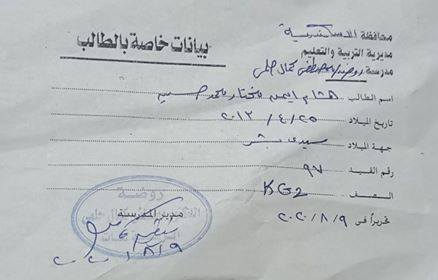 محافظة الإسكندرية
مديرية التربية والتعليم
مدرسة روضة د/مصطفى كمال حلمى
بيانات خاصة بالطالب
اسم الطالب هشام ايمن مختار محمد حسين
تاريخ الميلاد ٢٠١٣/٤/٢٥
جهة الميلاد سيدى بشر
رقم القيد ٩٧
الصف KG2
تحريراً فى ٢٠٢٠/٨/٩
روضة
مدير المدرسة